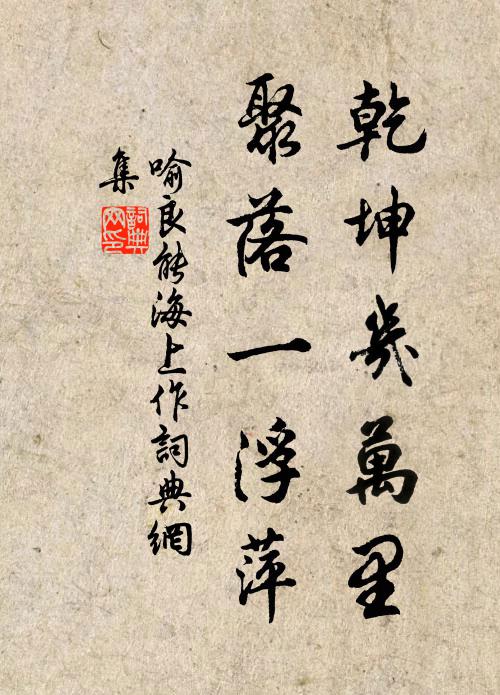 乾坤幾萬里
聚落一浮萍
喻良能海上作詞典網
集
詞典
网印